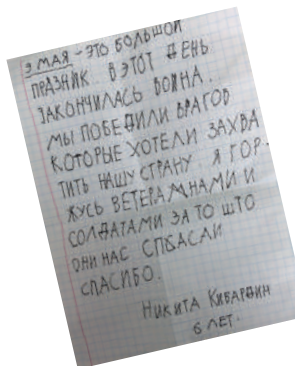 9 МАЯ - ЭТО БОЛЬШОЙ
ПРАЗНИК. В ЭТОТ ДЕНЬ
ЗАКОНЧИЛАСЬ ВОИНА.
МЫ ПОБЕДИЛИ ВРАГОВ
КОТОРЫЕ ХОТЕЛИ ЗАХВА
ТИТЬ НАШУ СТРАНУ Я ГОР-
ЖУСЬ ВЕТЕРАМНАМИ И
СОЛДАТАМИ ЗА ТО ШТО
ОНИ НАС СПБАСАЛИ
СПАСИБО.
НИКИТА КИБАРДИН
6 ЛЕТ.